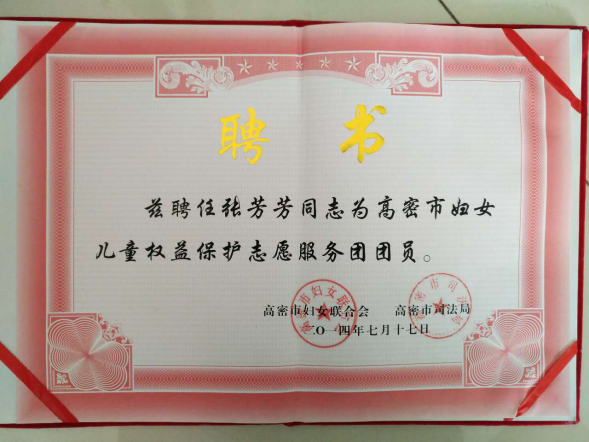 聘 书
兹聘任张芳芳同志为高密市妇女
儿童权益保护志愿服务团团员。
高密市妇女联合会 高密市司法局
二〇一四年七月十七日